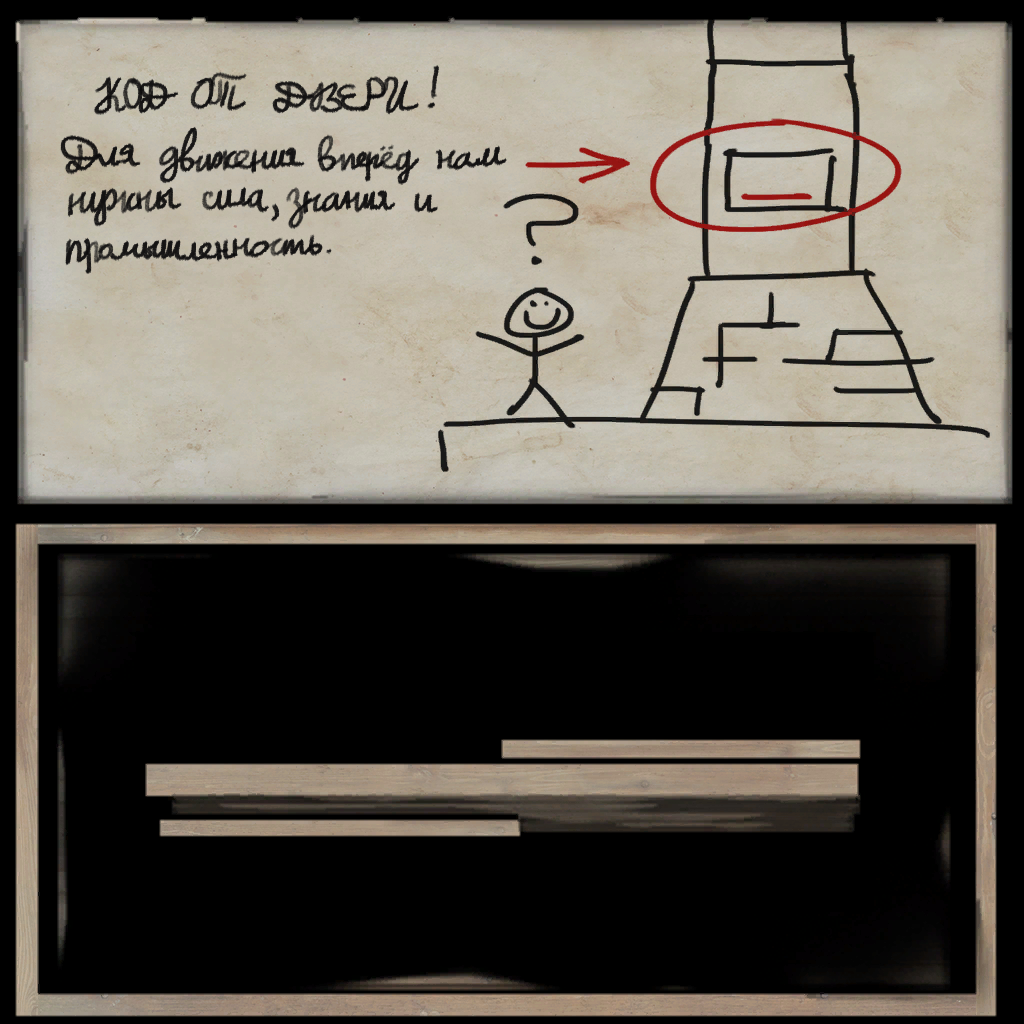 КОД ОТ ДВЕРИ!
Для движения вперёд нам
нужны сила, знания и
промышленность.
?